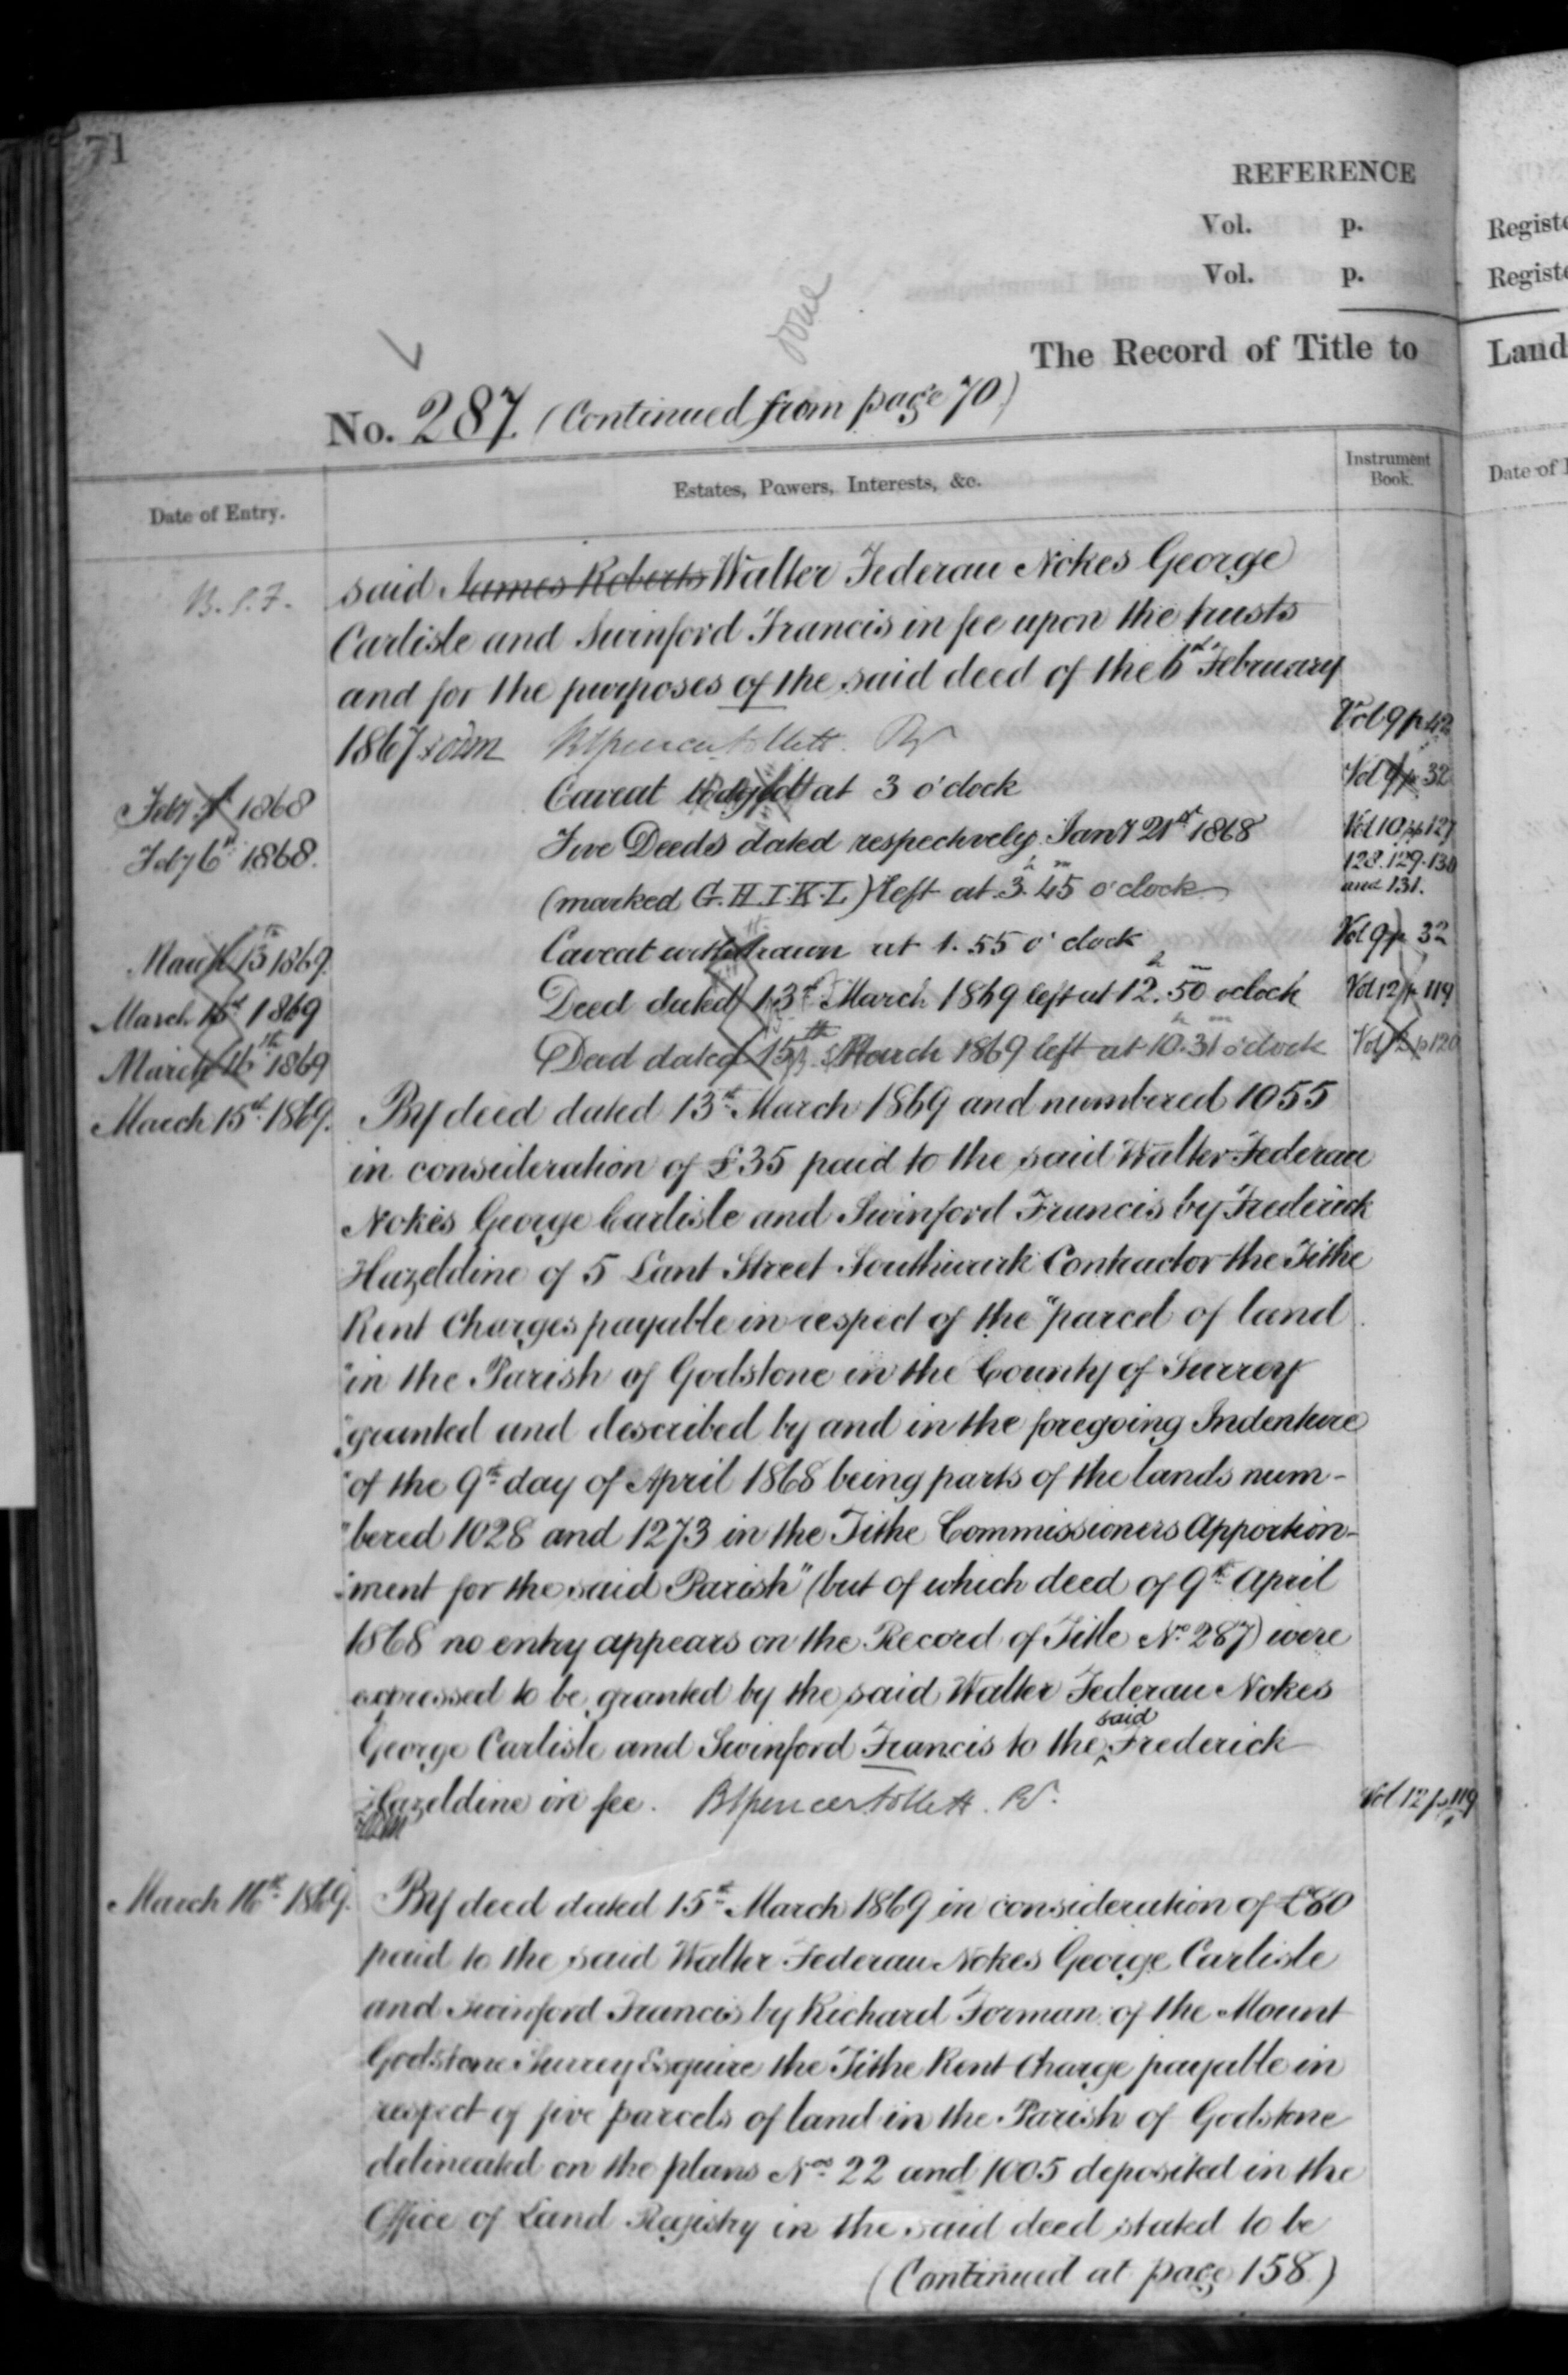 71
REFERENCE
Vol. p.
Vol. p.
done
The Record of Title to
No. 287 (Continued from page 70)
Date of Entry.
Estates, Powers, Interests, &c.
Instrument Book.
B.S.F.
said James Roberts Walter Federau Nokes George
Carlisle and Swinford Francis in fee upon the trusts
and for the purposes of the said deed of the 6th February
1867 Vol 9 p 42
Feby 1868 Caveat at 3 o'clock Vol 9 p 32
Feby 6th 1868. Five Deeds dated respectively Jany 21st 1868 Vol 10 pp 127
128. 129. 130
(marked G. H. I. K. L) left at 3h. 45m o'clock and 131.
March 13th 1869. Caveat withdrawn at 1. 55 o'clock Vol 9 p 32
March 15th 1869 Deed dated 13th March 1869 left at 12h. 50m o'clock Vol 12 p 119
March 16th 1869 Deed dated 15th March 1869 left at 10h. 31m o'clock Vol 12 p 120
March 15th 1869. By deed dated 13th March 1869 and numbered 1055
in consideration of £35 paid to the said Walter Federau
Nokes George Carlisle and Swinford Francis by Frederick
Hazeldine of 5 Lant Street Southwark Contractor the Tithe
Rent Charges payable in respect of the "parcel of land
"in the Parish of Godstone in the County of Surrey
"granted and described by and in the foregoing Indenture
"of the 9th day of April 1868 being parts of the lands num-
"bered 1028 and 1273 in the Tithe Commissioners Apportion-
"ment for the said Parish" (but of which deed of 9th April
1868 no entry appears on the Record of Title No 287) were
expressed to be granted by the said Walter Federau Nokes
George Carlisle and Swinford Francis to the said Frederick
Hazeldine in fee. Vol 12 p 119
March 16th 1869. By deed dated 15th March 1869 in consideration of £60
paid to the said Walter Federau Nokes George Carlisle
and Swinford Francis by Richard Forman of the Mount
Godstone Surrey Esquire the Tithe Rent Charge payable in
respect of five parcels of land in the Parish of Godstone
delineated on the plans Nos 22 and 1005 deposited in the
Office of Land Registry in the said deed stated to be
(Continued at page 158)
Registe
Registe
Land
Date of